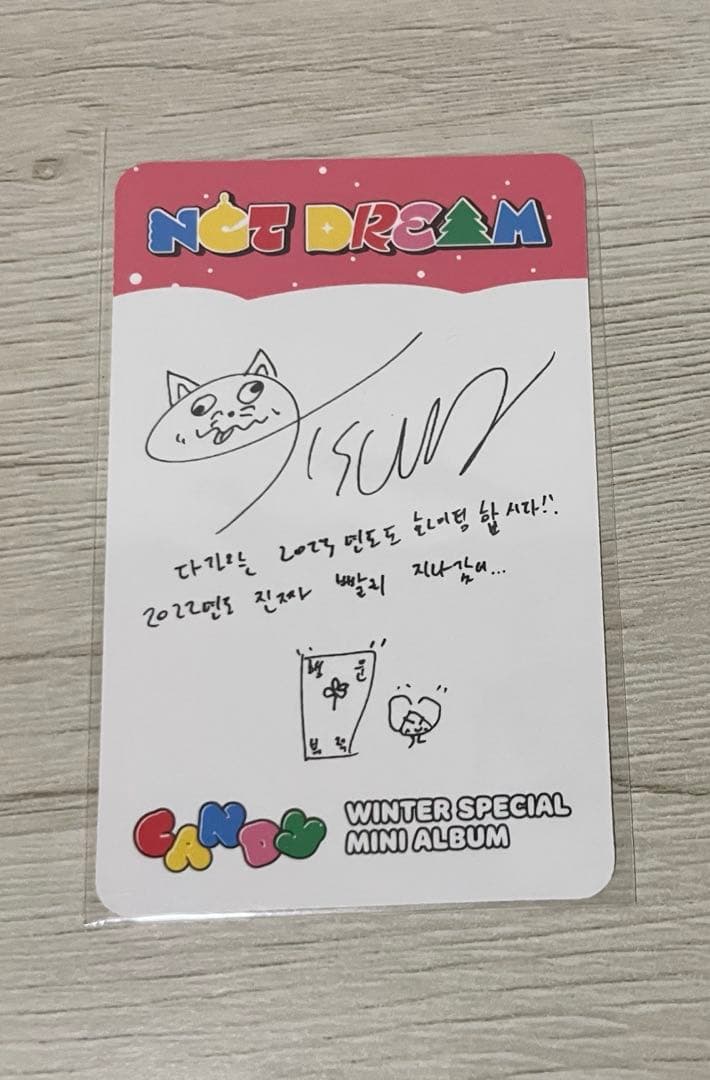 NCT DREAM
Jisung
다가오는 2023년도도 화이팅 합시다!!
2022년도 진짜 빨리 지나감이...
행 운
부 적
CANDY WINTER SPECIAL
MINI ALBUM